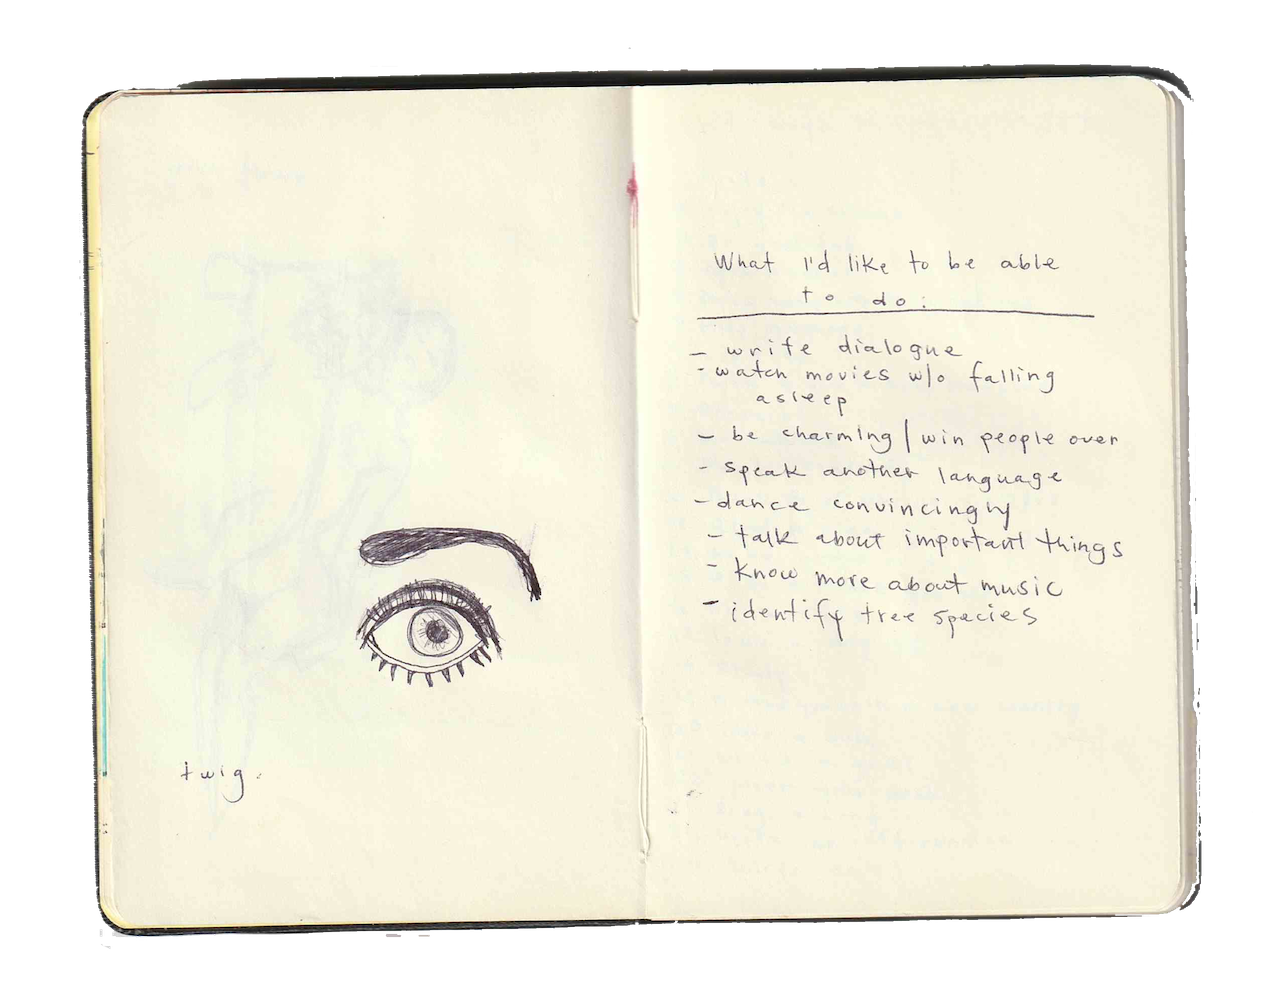 twig.
What I'd like to be able
to do:
- write dialogue
- watch movies w/o falling
asleep
- be charming / win people over
- speak another language
- dance convincingly
- talk about important things
- know more about music
- identify tree species